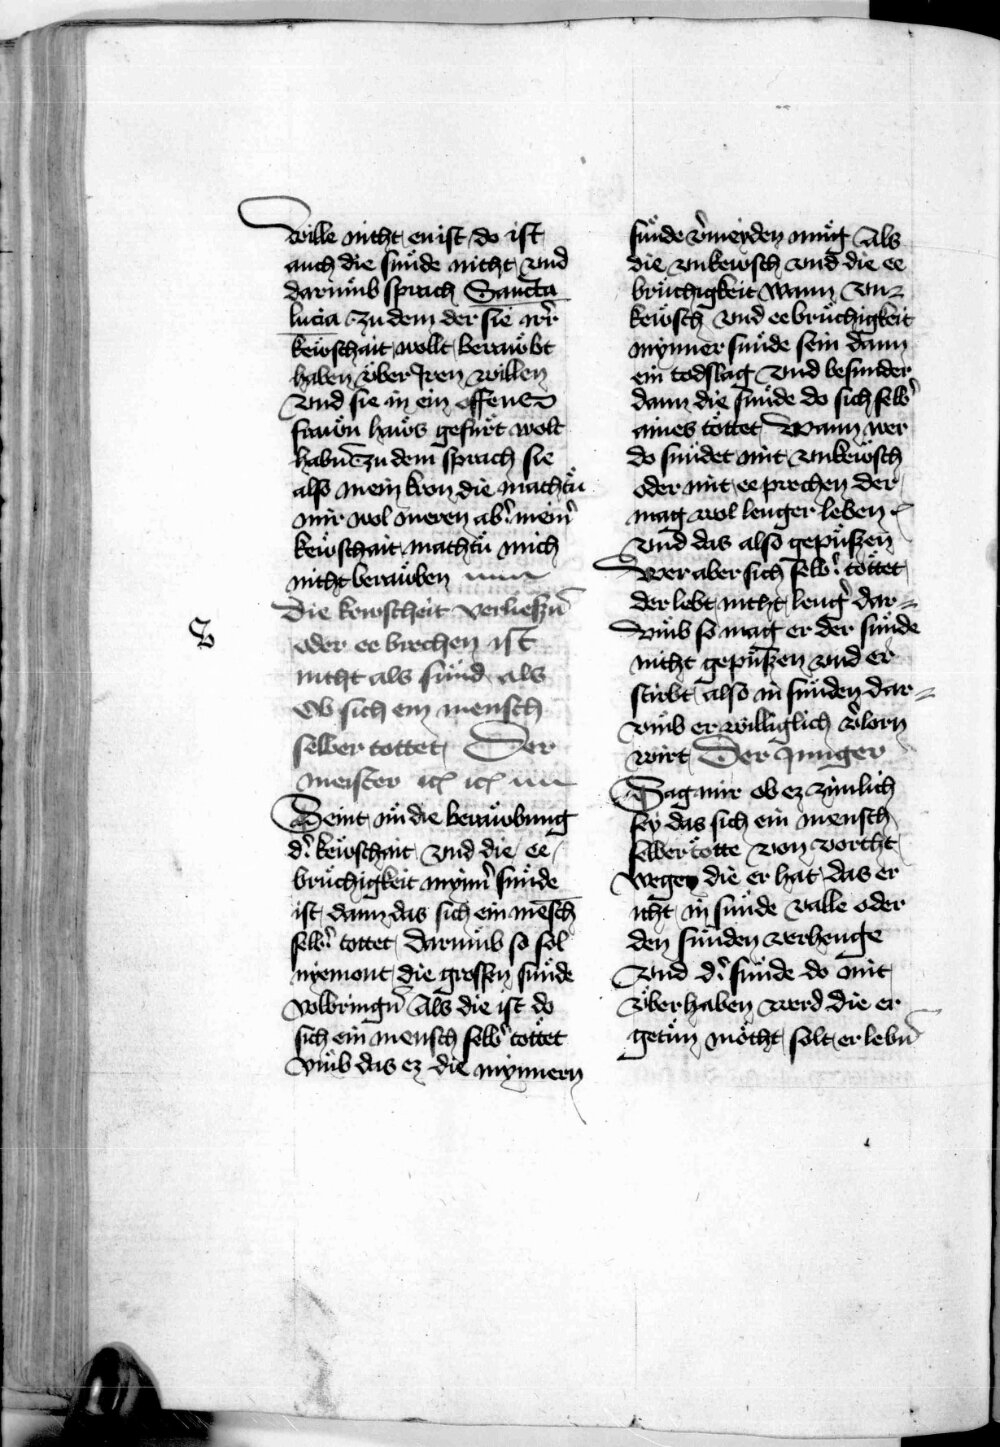 wille nicht enist do ist
auch die sünde nicht vnd
darümb sprach Sancta
lucia zu dem der sie irͤr
keüschait wollt beraubt
haben über Iren willen
Vnd sie in ein offenes
frauͦn haus gefürt wolt
habn̄ zu dem sprach sie
also mein kron die machtu
mir wol meren ab᷑ mein᷑
keuschait machtu mich
nicht berauben
die kewscheit verlieszn̄
oder ee brechen ist
nicht als sund als
Ob sich ein mensch
selber tottet Der
meister
Seint nü die beraubung
d᷑ keuschait vnd die ee
brüchigkeit mynn᷑ sünde
ist dann das sich ein mēsch
selb᷑ tottet Darümb so sol
nyemont die grossen sünde
volbringn̄ Als die ist do
sich ein mensch selb᷑ tottet
vmb das ez die mynnern
S
sünde v᷑meyden müg Als
die vnkeusch vnd die ee
brüchigkeit Wann vn⸗
keusch vnd ee brüchigkeit
mynner sünde sein dann
ein todslag vnd besunder
dann die sünde do sich selb᷑
aines töttet Wann wer
do sündet mit vnkeusch
oder mit ee prechen der
mag wol lenger leben
Vnd das also gepüßen
Wer aber sich selb᷑ töttet
der lebt nicht leng᷑ dar⸗
vmb so mag er der sünde
nicht gepüßen vnd er
stirbt also in sünden dar⸗
vmb er williglich v᷑lorn
wirt Der Junger
Sag mir ob ez zimlich
sey das sich ein mensch
selber totte von vorcht
wegen die er hat das er
icht in sünde valle oder
den sünden verhenge
Vnd d᷑ sünde do mit
über haben werd die er
getün möcht solt er lebn̄